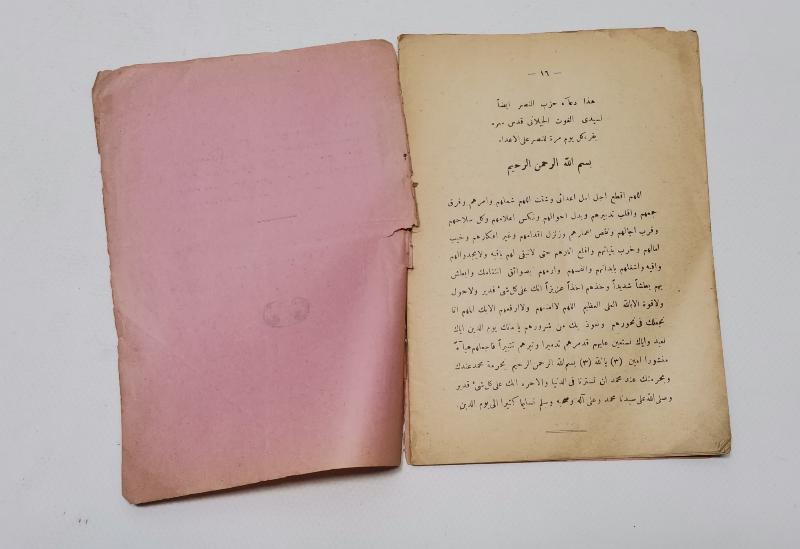 — ١٦ —
هذا دعآء حزب النصر ايضاً
لسيدى الغوث الجيلانى قدس سره
يقرء كل يوم مرة للنصر على الاعداء
بسم الله الرحمن الرحيم
اللهم اقطع اجل امل اعدائى وشتت اللهم شملهم وامرهم وفرق
جمعهم واقلب تدبيرهم وبدل احوالهم ونكس اعلامهم وكل سلاحهم
وقرب اجالهم ونقص اعمارهم وزلزل اقدامهم وغير افكارهم وخيب
امالهم وخرب بنيانهم واقلع اثارهم حتى لاتبقى لهم باقيه ولايجدوالهم
واقيه واشغلهم بابدانهم وانفسهم وارمهم بصواعق انتقامك وابطش
بهم بطشاً شديداً وخذهم اخذاً عزيزاً انك على كل شئ قدير ولاحول
ولاقوة الابالله العلى العظيم اللهم لاامنعهم ولاارفعهم الابك اللهم انا
نجعلك فى نحورهم ونعوذ بك من شرورهم يامالك يوم الدين اياك
نعبد واياك نستعين عليهم فدمرهم تدميرا وتبرهم تتبيراً فاجعلهم هبآءً
منثورا امين (٣) يالله (٣) بسم الله الرحمن الرحيم بحرمة محمد عندك
وبحرمتك عند محمد ان تسترنا فى الدنيا والاخره انك على كل شئ قدير
وصلى الله على سيدنا محمد وعلى آله وصحبه وسلم تسليما كثيرا الى يوم الدين.